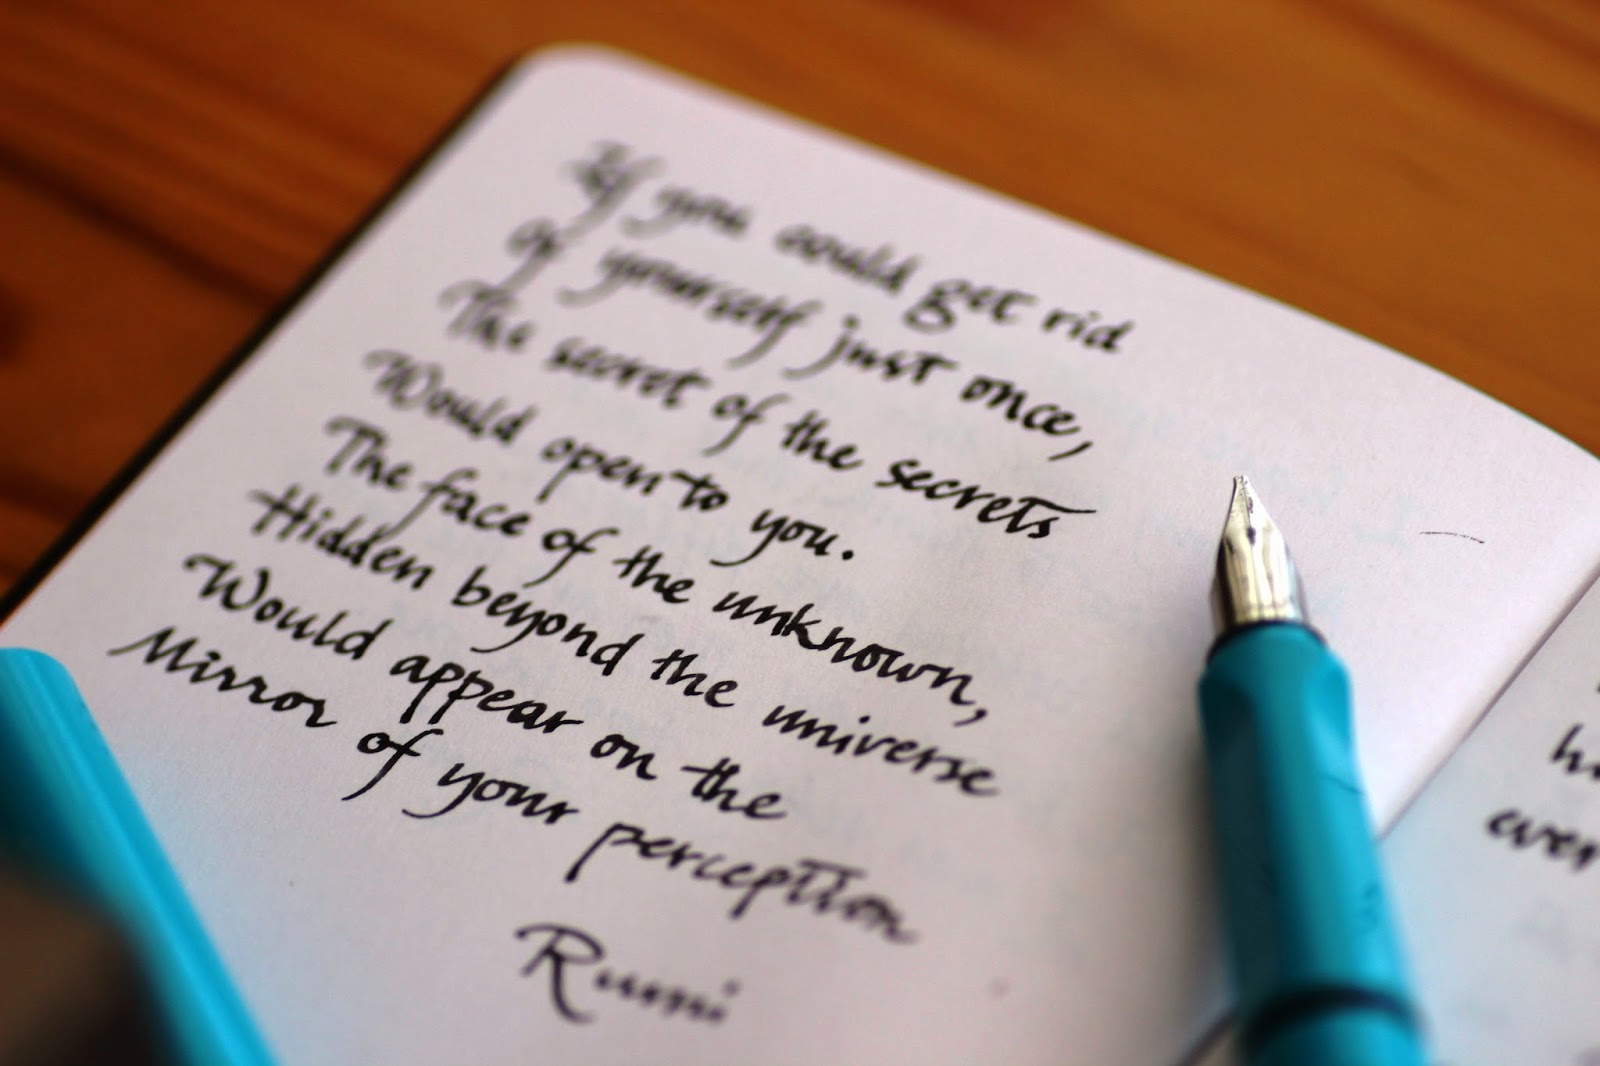 If you could get rid
of yourself just once,
The secret of the secrets
Would open to you.
The face of the unknown,
Hidden beyond the universe
Would appear on the
Mirror of your perception
Rumi